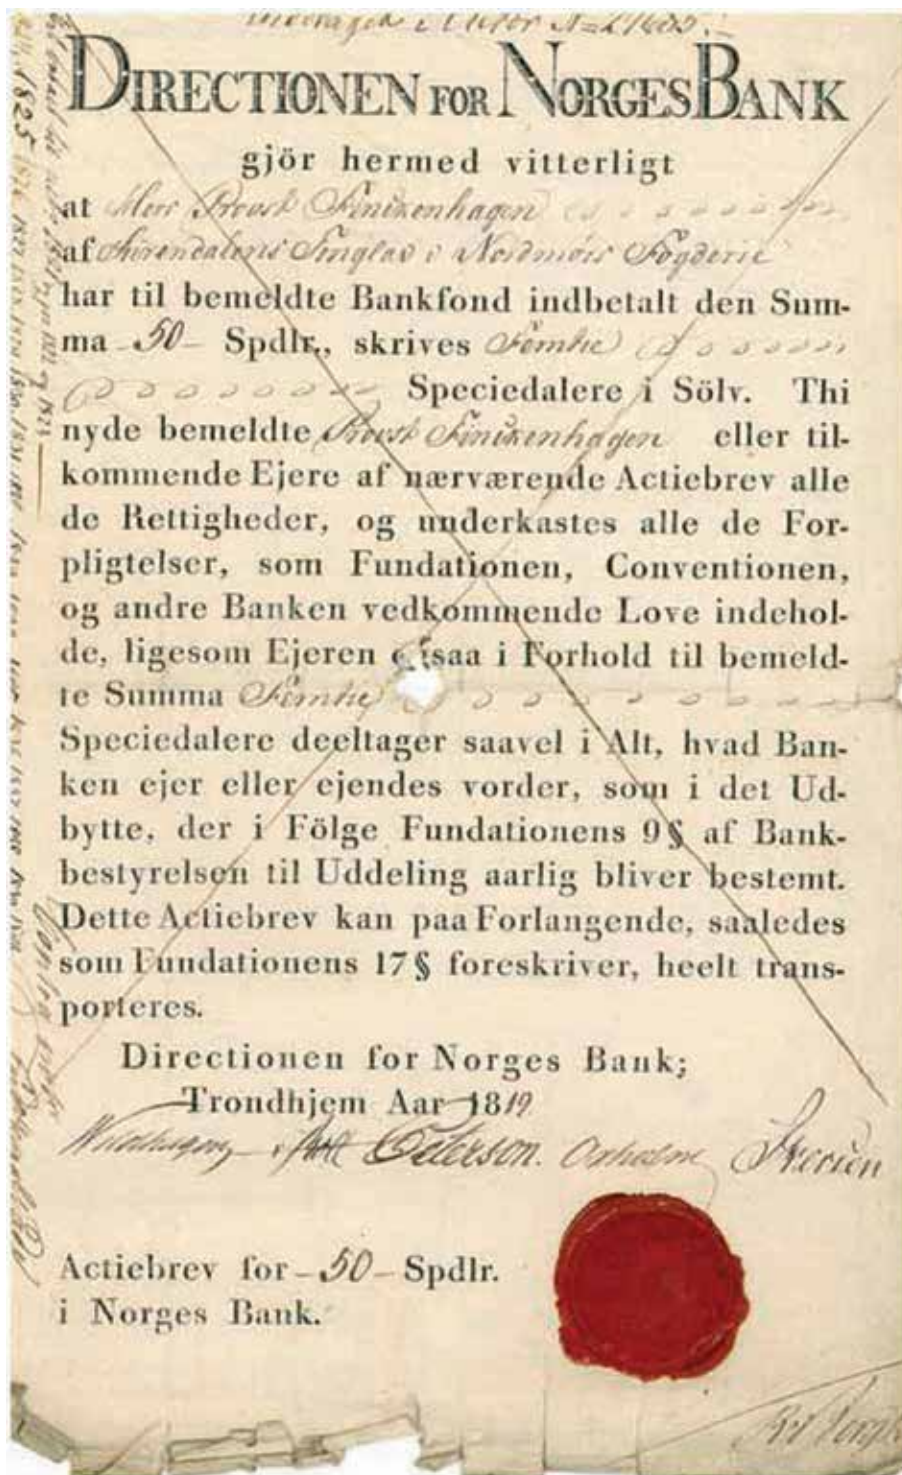 DIRECTIONEN FOR NORGES BANK
gjör hermed vitterligt
at Herr Provst Finckenhagen
af Nordmørs Fogderie
har til bemeldte Bankfond indbetalt den Sum-
ma 50 Spdlr., skrives Femtie
Speciedalere i Sölv. Thi
nyde bemeldte Provst Finckenhagen eller til-
kommende Ejere af nærværende Actiebrev alle
de Rettigheder, og underkastes alle de For-
pligtelser, som Fundationen, Conventionen,
og andre Banken vedkommende Love indehol-
de, ligesom Ejeren i Forhold til bemeld-
te Summa Femtie
Speciedalere deeltager saavel i Alt, hvad Ban-
ken ejer eller ejendes vorder, som i det Ud-
bytte, der i Fölge Fundationens 9 § af Bank-
bestyrelsen til Uddeling aarlig bliver bestemt.
Dette Actiebrev kan paa Forlangende, saaledes
som Fundationens 17 § foreskriver, heelt trans-
porteres.
Directionen for Norges Bank;
Trondhjem Aar 1819
Peterson.
Actiebrev for 50 Spdlr.
i Norges Bank.
1825